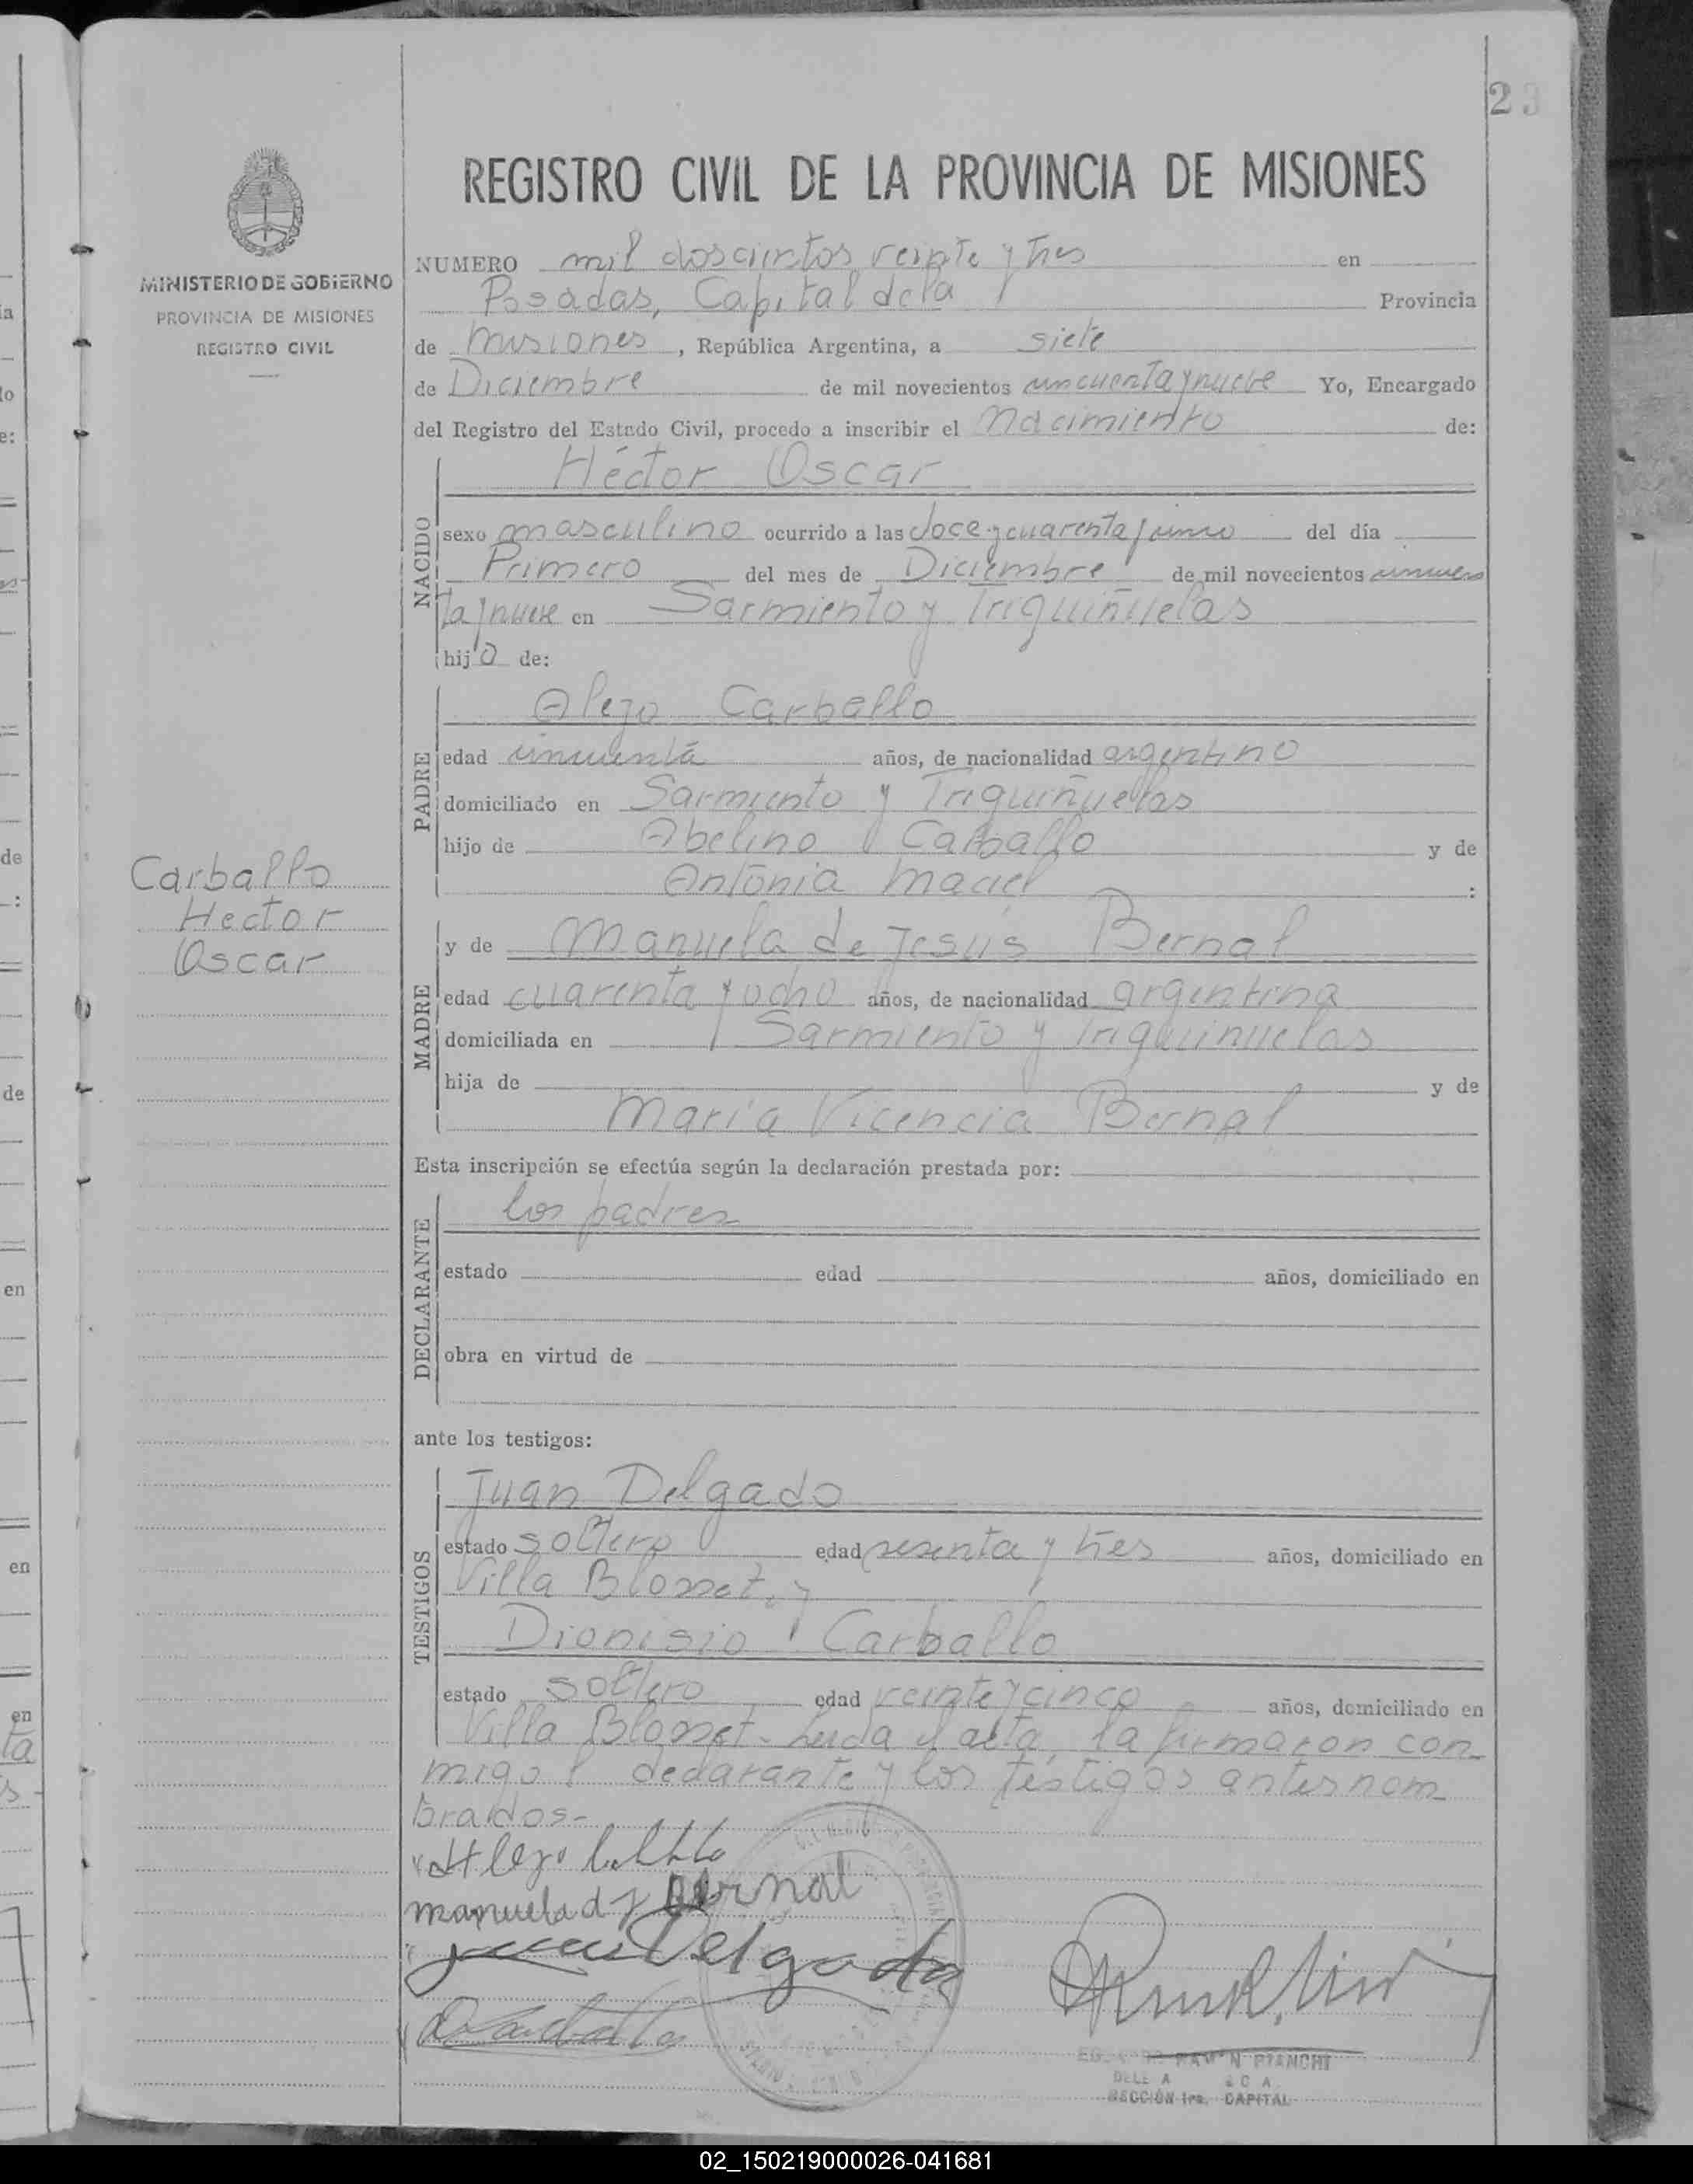 23
REGISTRO CIVIL DE LA PROVINCIA DE MISIONES
MINISTERIO DE GOBIERNO
PROVINCIA DE MISIONES
REGISTRO CIVIL
NUMERO mil doscientos veinte y tres en
Posadas, Capital de la Provincia
de Misiones, República Argentina, a siete
de Diciembre de mil novecientos cincuenta y nueve Yo, Encargado
del Registro del Estado Civil, procedo a inscribir el Nacimiento de:
NACIDO
Héctor Oscar
sexo masculino ocurrido a las doce y cuarenta y cinco del día
Primero del mes de Diciembre de mil novecientos cincuen
ta y nueve en Sarmiento y Triquiñuelas
hijo de:
PADRE
Alejo Carballo
edad cincuenta años, de nacionalidad argentino
domiciliado en Sarmiento y Triquiñuelas
hijo de Abelino Carballo y de
Antonia Maciel :
Carballo
Hector
Oscar
MADRE
y de Manuela de Jesús Bernal
edad cuarenta y ocho años, de nacionalidad argentina
domiciliada en Sarmiento y Triquinuelas
hija de y de
María Vicencia Bernal
Esta inscripción se efectúa según la declaración prestada por:
DECLARANTE
los padres
estado edad años, domiciliado en
obra en virtud de
ante los testigos:
TESTIGOS
Juan Delgado
estado soltero edad sesenta y tres años, domiciliado en
Villa Blosset. y
Dionisio Carballo
estado soltero edad veinte y cinco años, domiciliado en
Villa Blosset. Leida el acta, la firmaron con
migo l declarante y los testigos antes nom
brados-
Alejo
manuela d J Bernal
Juan Delgado
D Carballo
RAMON BIANCHI
SECCIÓN 1ra. CAPITAL
02_150219000026-041681